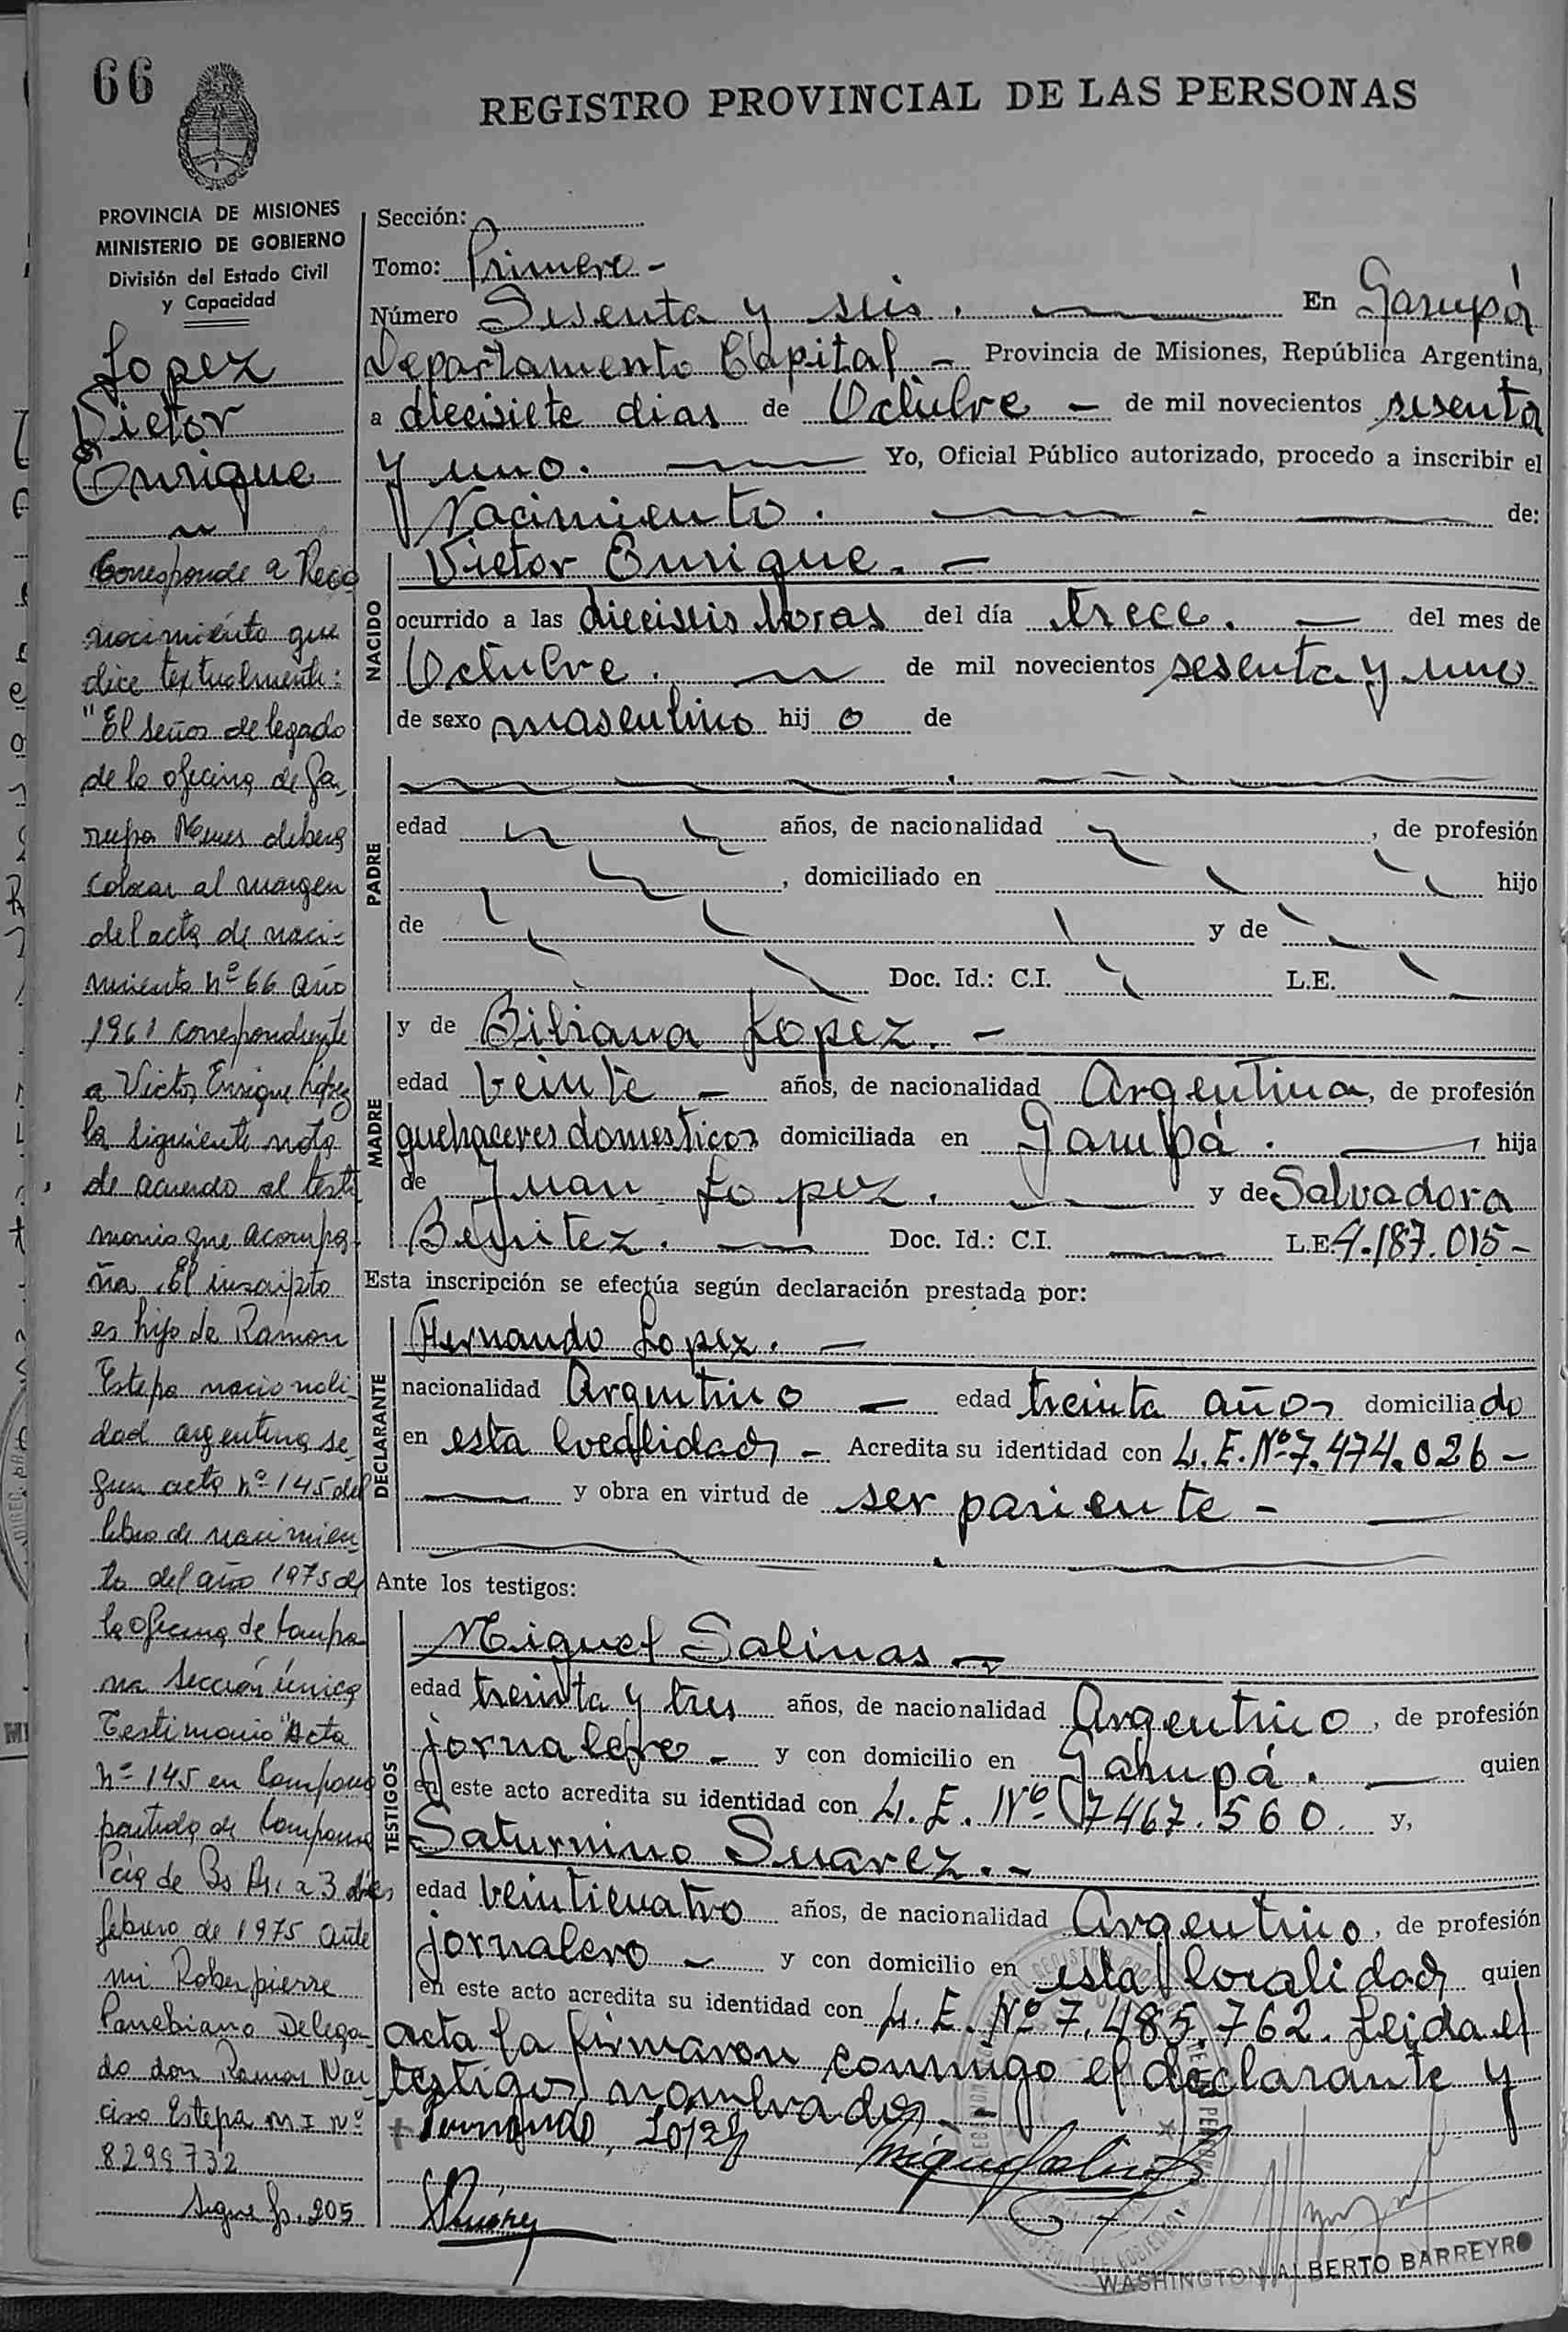 66
REGISTRO PROVINCIAL DE LAS PERSONAS
PROVINCIA DE MISIONES
MINISTERIO DE GOBIERNO
División del Estado Civil
y Capacidad
Lopez
Victor
Enrique
Corresponde a Reco
nocimiento que
dice textualmente:
"El señor delegado
de la oficina de Ga-
rupa Mnes debera
colocar al margen
del acta de naci-
miento nº 66 año
1961 correspondiente
a Victor Enrique López
la siguiente nota
de acuerdo al testi
monio que acompa-
ña. El inscripto
es hijo de Ramon
Estepa nacionali-
dad argentina se-
gun acta nº 145 del
libro de nacimien
to del año 1975 de
la oficina de Campa
na Sección única
Testimonio "Acta
nº 145 en Campana
partido de Campana
Pcia de Bs As. a 3 de
febrero de 1975 ante
mi Roberpierre
Delega-
do don Ramon Nar
ciso Estepa M I Nº
8299732
Sigue fs. 205
Sección:
Tomo: Primero -
Número Sesenta y seis. En Garupá
Departamento Capital - Provincia de Misiones, República Argentina,
a diecisiete dias de Octubre - de mil novecientos sesenta
y uno. Yo, Oficial Público autorizado, procedo a inscribir el
Nacimiento. de:
NACIDO
Victor Enrique. -
ocurrido a las dieciseis horas del día trece. del mes de
Octubre. de mil novecientos sesenta y uno
de sexo masculino hij o de
PADRE
edad años, de nacionalidad , de profesión
, domiciliado en hijo
de y de
Doc. Id.: C.I. L.E.
MADRE
y de Bibiana Lopez. -
edad veinte - años, de nacionalidad Argentina, de profesión
quehaceres domesticos domiciliada en Garupá. hija
de Juan Lopez. y de Salvadora
Benitez. Doc. Id.: C.I. L.E. 4.187.015 -
Esta inscripción se efectúa según declaración prestada por:
DECLARANTE
Hernando Lopez. -
nacionalidad Argentino - edad treinta años domiciliado
en esta localidad - Acredita su identidad con L.E. Nº 7.474.026 -
y obra en virtud de ser pariente -
Ante los testigos:
TESTIGOS
Miguel Salinas -
edad treinta y tres años, de nacionalidad Argentino, de profesión
jornalero - y con domicilio en Garupá. quien
en este acto acredita su identidad con L.E. Nº 7467.560. y,
Saturnino Suarez. -
edad veinticuatro años, de nacionalidad Argentino, de profesión
jornalero - y con domicilio en esta localidad quien
en este acto acredita su identidad con L.E. Nº 7.485.762. Leida el
acta la firmaron conmigo el declarante y
testigos nombrados. -
WASHINGTON ALBERTO BARREYRO